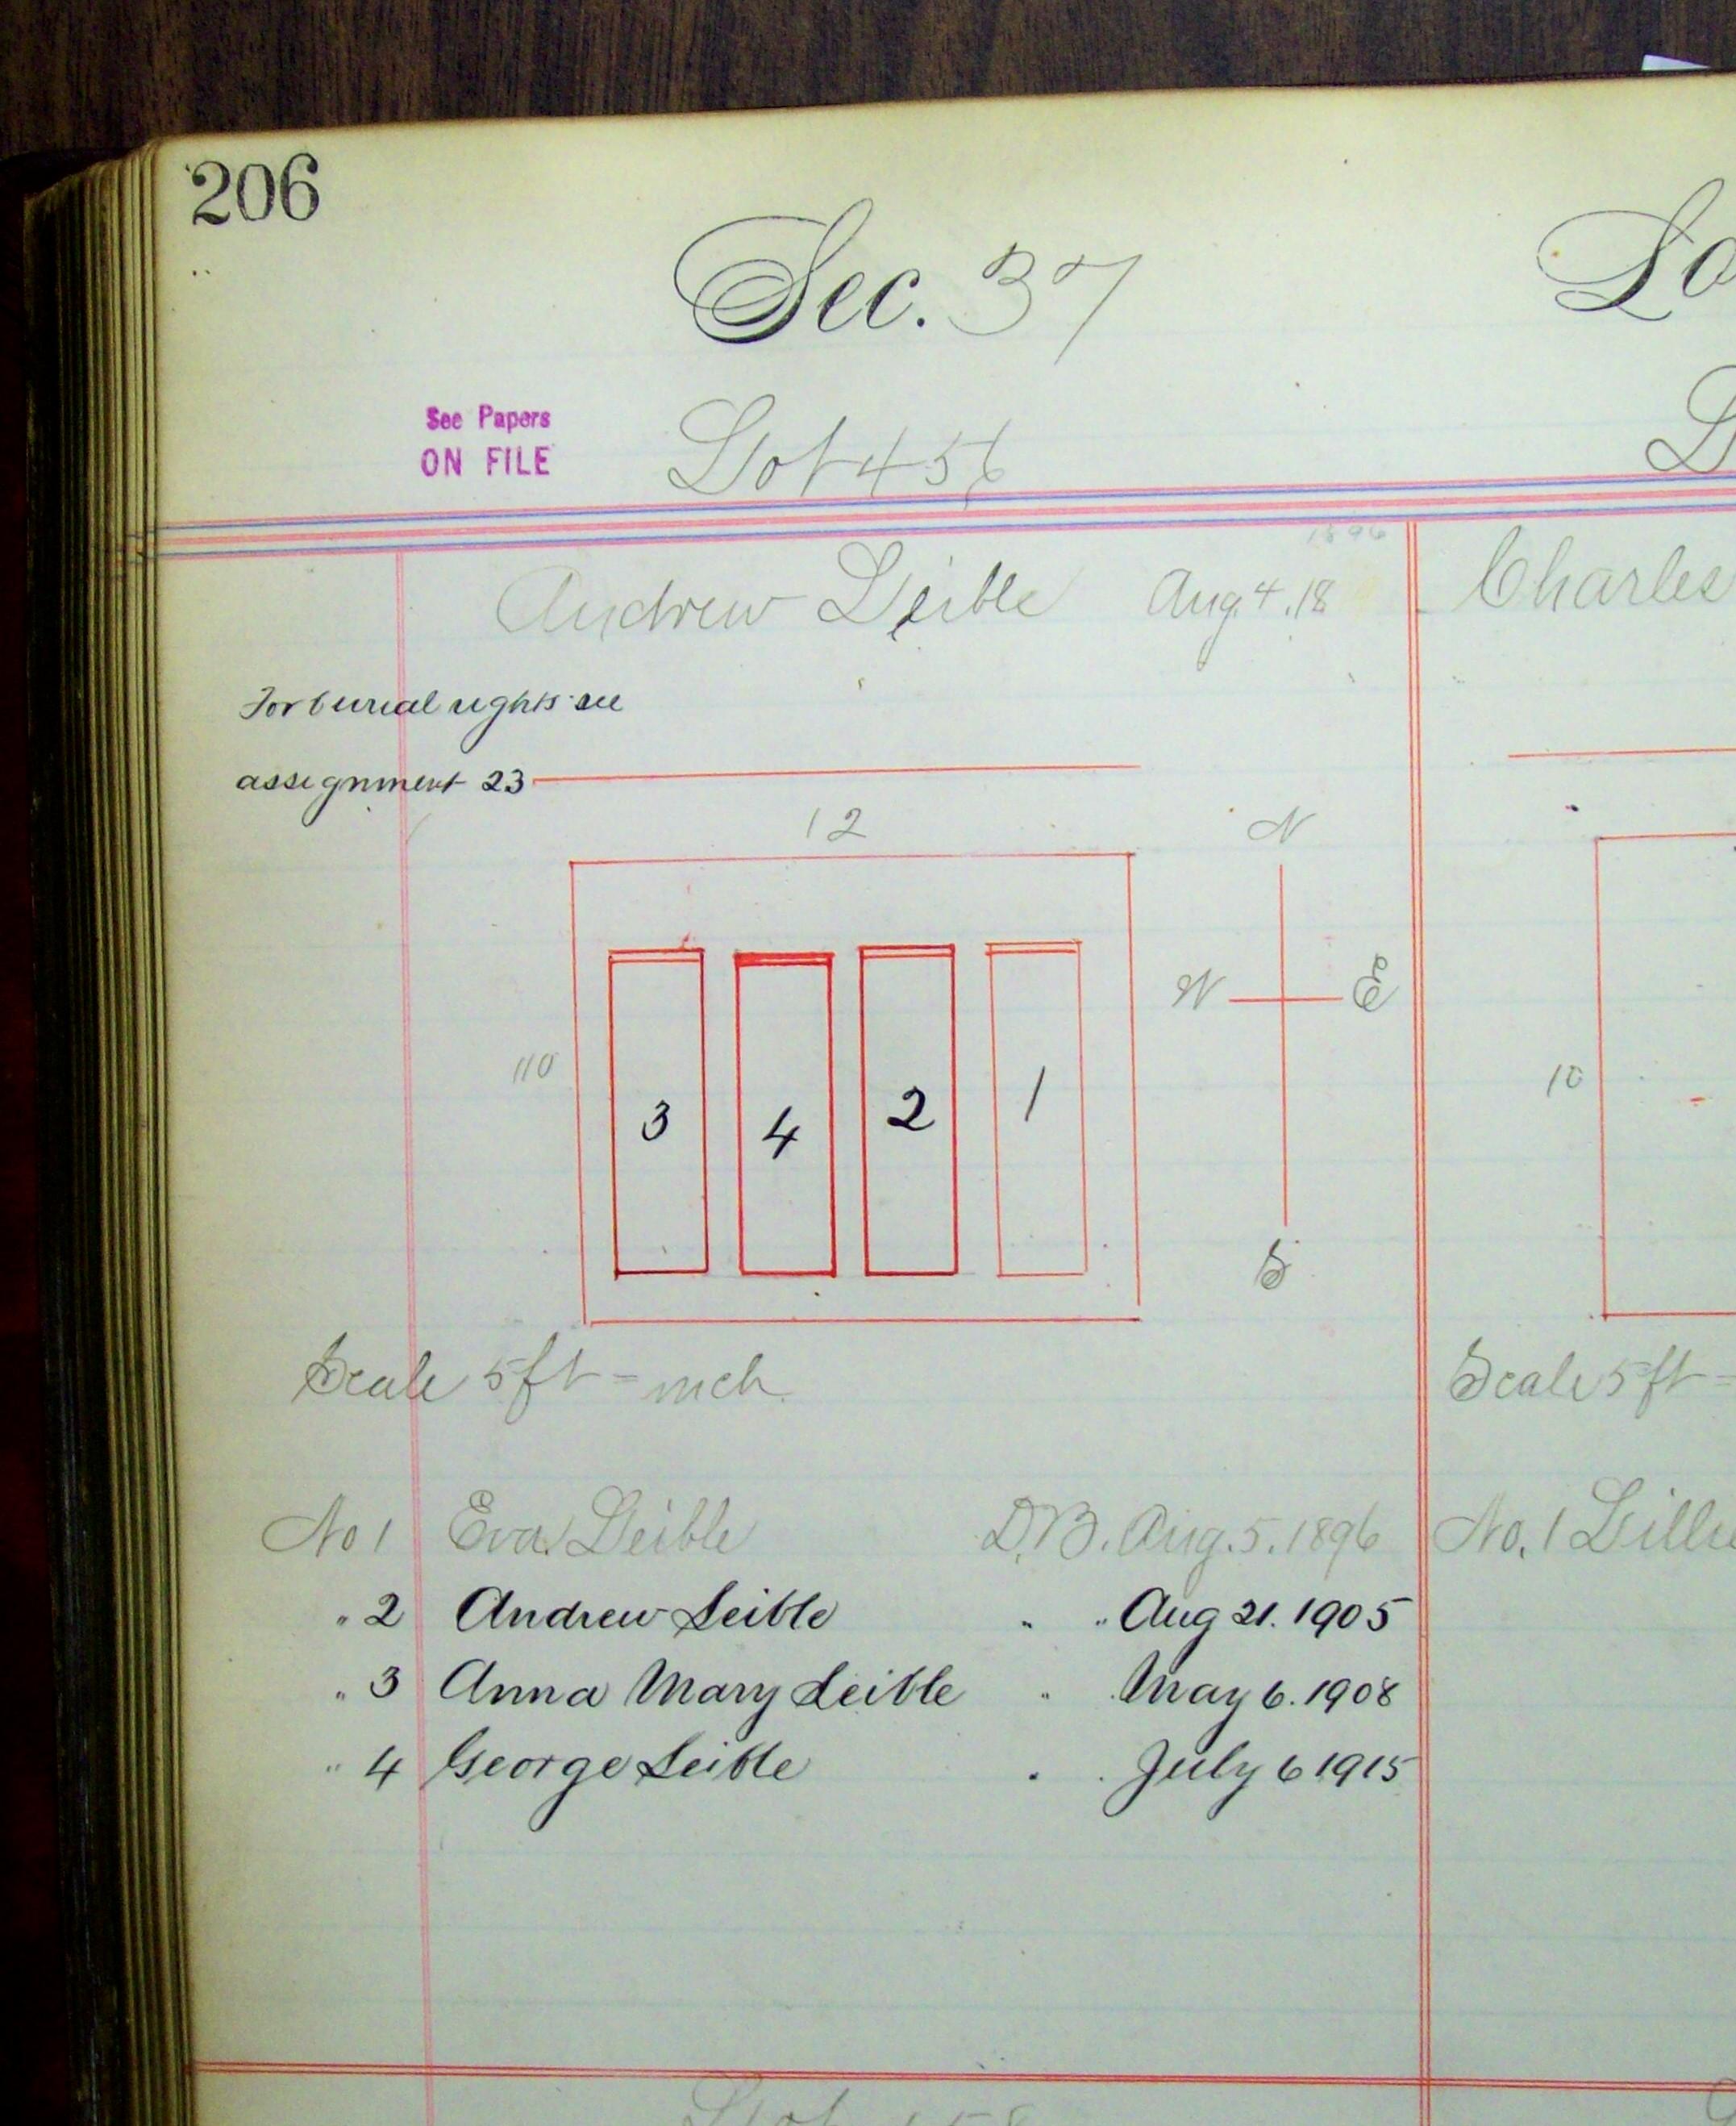 206
Sec. 37
See Papers
ON FILE
Lot 456
1896
Andrew Leible Aug. 4. 18
Charles
For burial rights see
assignment 23
12
N
W E
10
3 4 2 1
10
S
Scale 5 ft = inch
Scale 5 ft =
No 1 Eva Leible D.B. Aug. 5. 1896
No. 1
" 2 Andrew Leible " " Aug 21. 1905
" 3 Anna Mary Leible " " May 6. 1908
" 4 George Leible " " July 6 1915
Lot 458